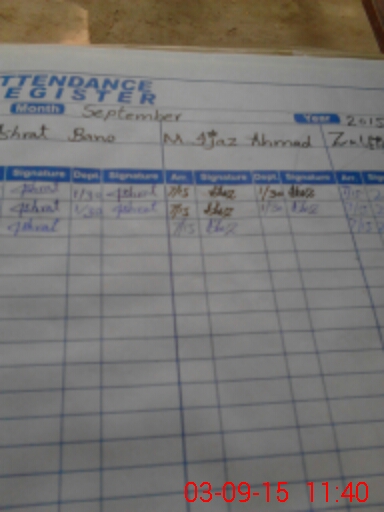 TTENDANCE
EGISTER
Month September Year 2015
shrat Bano M. Ijaz Ahmad
Signature Dept. Signature Arr. Signature Dept. Signature Arr. Sig
Ishrat 1/30 Ishrat 7/15 Ijaz 1/30 Ijaz 7/15
Ishrat 1/30 Ishrat 7/15 Ijaz 1/30 Ijaz 7/15
Ishrat 7/15 Ijaz 7/15
03-09-15 11:40